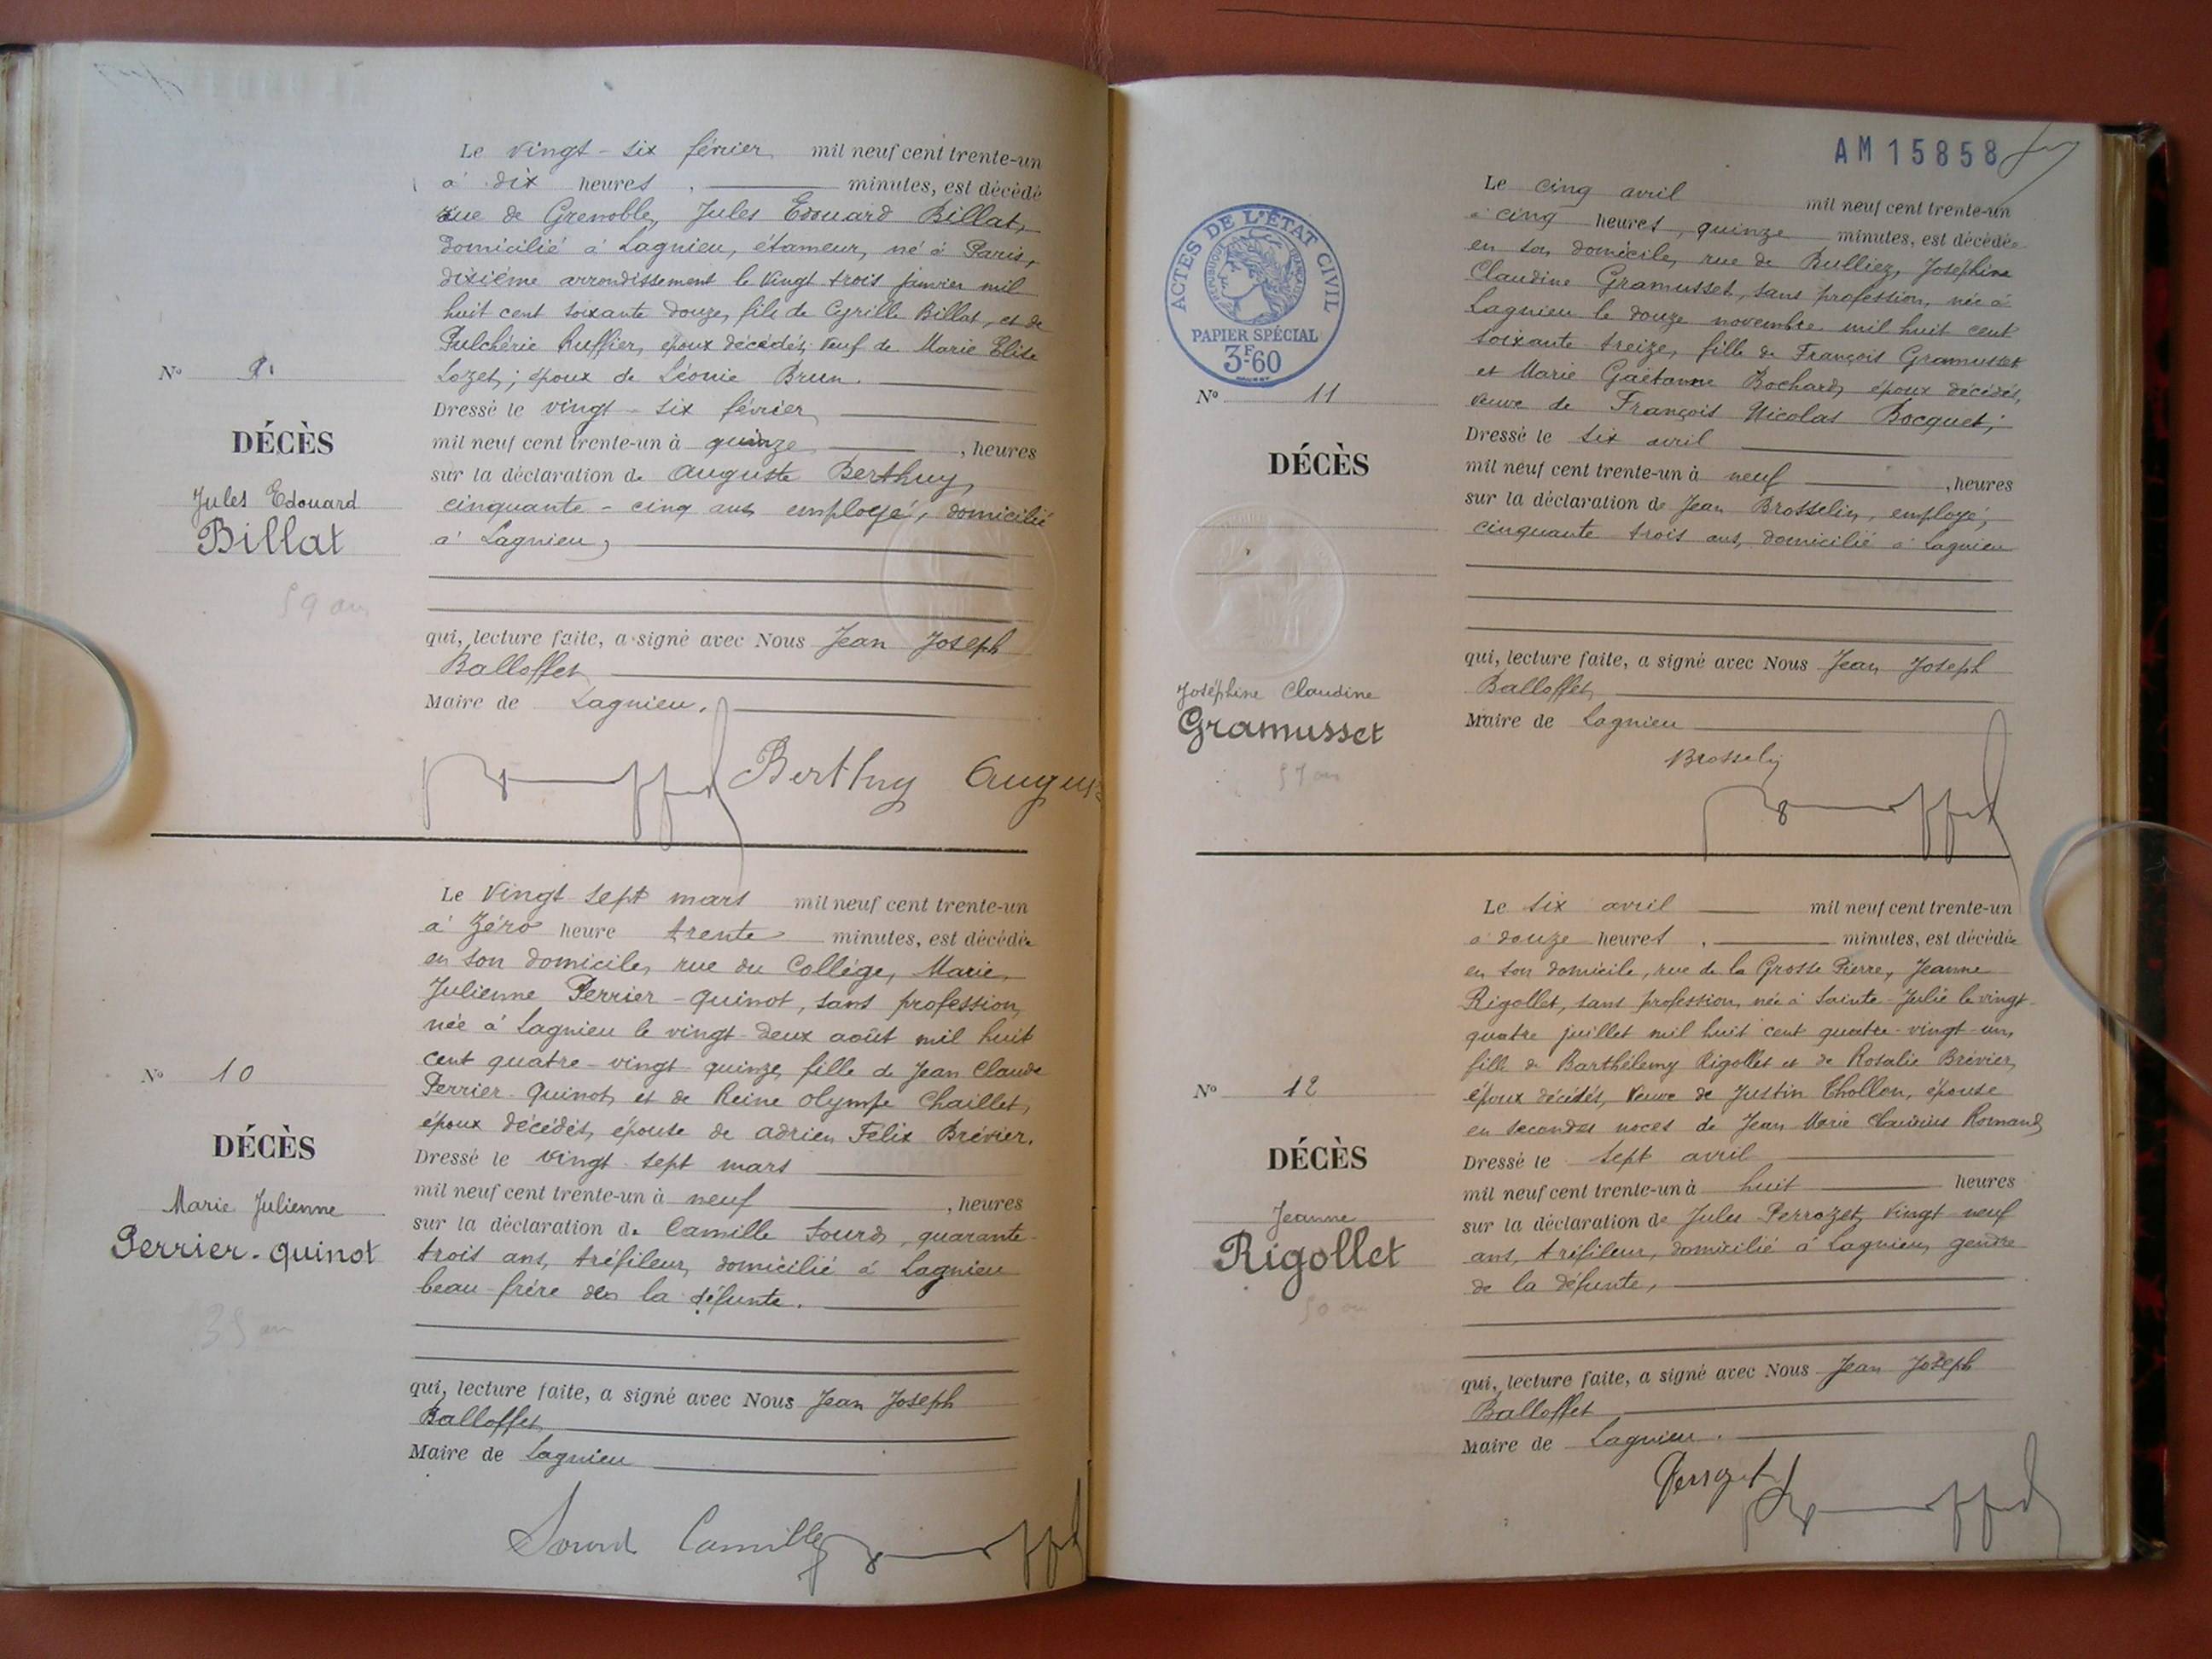 Le vingt-six février mil neuf cent trente-un
à dix heures, minutes, est décédé
rue de Grenoble, Jules Edouard Billat,
domicilié à Lagnieu, étameur, né à Paris,
dixième arrondissement le vingt trois janvier mil
huit cent soixante douze, fils de Cyrille Billat, et de
Pulchérie Ruffier, époux décédés; veuf de Marie Elise
Lozet; époux de Léonie Brun.
Nº 9.
DÉCÈS
Jules Edouard
Billat
59 ans
Dressé le vingt-six février
mil neuf cent trente-un à quinze, heures
sur la déclaration de Auguste Berthuy,
cinquante-cinq ans employé, domicilié
à Lagnieu,
qui, lecture faite, a signé avec Nous Jean Joseph
Balloffet
Maire de Lagnieu.
Berthuy Augus
Le vingt sept mars mil neuf cent trente-un
à zéro heure trente minutes, est décédée
en son domicile, rue du Collège, Marie
Julienne Perrier-quinot, sans profession,
née à Lagnieu le vingt-deux août mil huit
cent quatre-vingt quinze, fille de Jean Claude
Perrier-Quinot, et de Reine Olympe Chaillet,
époux décédés, épouse de Adrien Félix Brévier.
Nº 10
DÉCÈS
Marie Julienne
Perrier-quinot
35 ans
Dressé le vingt-sept mars
mil neuf cent trente-un à neuf, heures
sur la déclaration de Camille Sourd, quarante-
trois ans, tréfileur, domicilié à Lagnieu
beau-frère de la défunte.
qui, lecture faite, a signé avec Nous Jean Joseph
Balloffet
Maire de Lagnieu
Sourd Camille
AM15858
ACTES DE L'ÉTAT CIVIL
RÉPUBLIQUE FRANÇAISE
PAPIER SPÉCIAL
3F60
Le cinq avril mil neuf cent trente-un
à cinq heures, quinze minutes, est décédée
en son domicile, rue de Bulliez, Joséphine
Claudine Gramusset, sans profession, née à
Lagnieu le douze novembre mil huit cent
soixante-treize, fille de François Gramusset
et Marie Gaëtanne Bochard, époux décédés,
veuve de François Nicolas Bocquet;
Nº 11
DÉCÈS
Joséphine Claudine
Gramusset
57 ans
Dressé le six avril
mil neuf cent trente-un à neuf, heures
sur la déclaration de Jean Brosselin, employé,
cinquante trois ans, domicilié à Lagnieu
qui, lecture faite, a signé avec Nous Jean Joseph
Balloffet
Maire de Lagnieu
Brosselin
Le six avril mil neuf cent trente-un
à douze heures, minutes, est décédée
en son domicile, rue de la Grosse Pierre, Jeanne
Rigollet, sans profession, née à Sainte-Julie le vingt-
quatre juillet mil huit cent quatre-vingt-un,
fille de Barthélemy Rigollet et de Rosalie Brévier,
époux décédés, veuve de Justin Thollon, épouse
en secondes noces de Jean Marie Claudius Romand
Nº 12
DÉCÈS
Jeanne
Rigollet
50 ans
Dressé le sept avril
mil neuf cent trente-un à huit heures
sur la déclaration de Jules Perrozet, vingt-neuf
ans, tréfileur, domicilié à Lagnieu, gendre
de la défunte,
qui, lecture faite, a signé avec Nous Jean Joseph
Balloffet
Maire de Lagnieu.
Perrozet